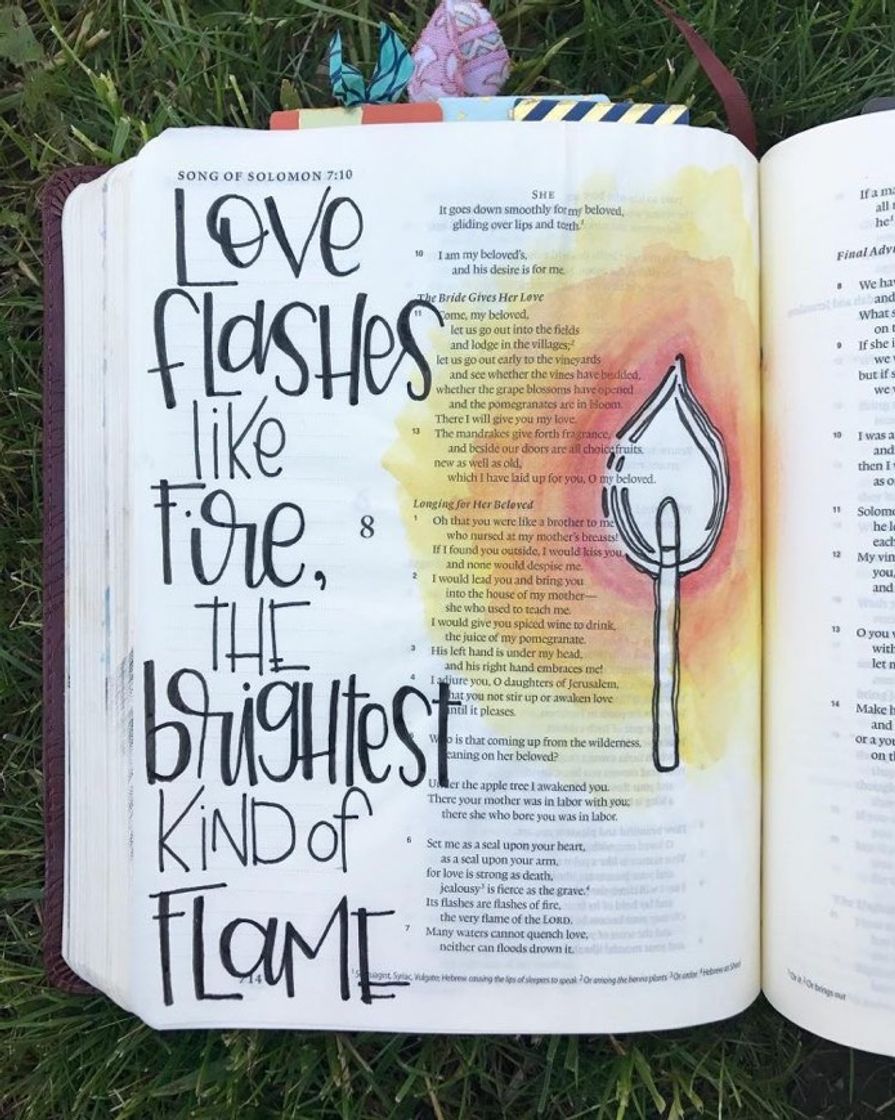 SONG OF SOLOMON 7:10
LOVE
FLASHES
like
FIRE,
THE
brightest
KIND of
FLAME
SHE
It goes down smoothly for my beloved,
gliding over lips and teeth.1
10 I am my beloved's,
and his desire is for me.
The Bride Gives Her Love
11 Come, my beloved,
let us go out into the fields
and lodge in the villages;2
let us go out early to the vineyards
and see whether the vines have budded,
whether the grape blossoms have opened
and the pomegranates are in bloom.
There I will give you my love.
13 The mandrakes give forth fragrance,
and beside our doors are all choice fruits,
new as well as old,
which I have laid up for you, O my beloved.
Longing for Her Beloved
8
1 Oh that you were like a brother to me
who nursed at my mother's breasts!
If I found you outside, I would kiss you,
and none would despise me.
2 I would lead you and bring you
into the house of my mother—
she who used to teach me.
I would give you spiced wine to drink,
the juice of my pomegranate.
3 His left hand is under my head,
and his right hand embraces me!
4 I adjure you, O daughters of Jerusalem,
that you not stir up or awaken love
until it pleases.
Who is that coming up from the wilderness,
leaning on her beloved?
Under the apple tree I awakened you.
There your mother was in labor with you;
there she who bore you was in labor.
6 Set me as a seal upon your heart,
as a seal upon your arm,
for love is strong as death,
jealousy3 is fierce as the grave.4
Its flashes are flashes of fire,
the very flame of the LORD.
7 Many waters cannot quench love,
neither can floods drown it.
Syriac, Vulgate; Hebrew causing the lips of sleepers to speak 2 Or among the henna plants 3 Or ardor 4 Hebrew as Sheol
If a
all
he
Final
8 We
and
What
on
9 If she
we
but if
we
10 I was a
and
then I
as
11
he
each
12 My
you,
and
13 O you
with
let
14 Make
and
or a
on
1 Or 2 Or brings out